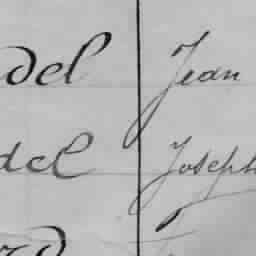 del Jean
del Joseph
rd